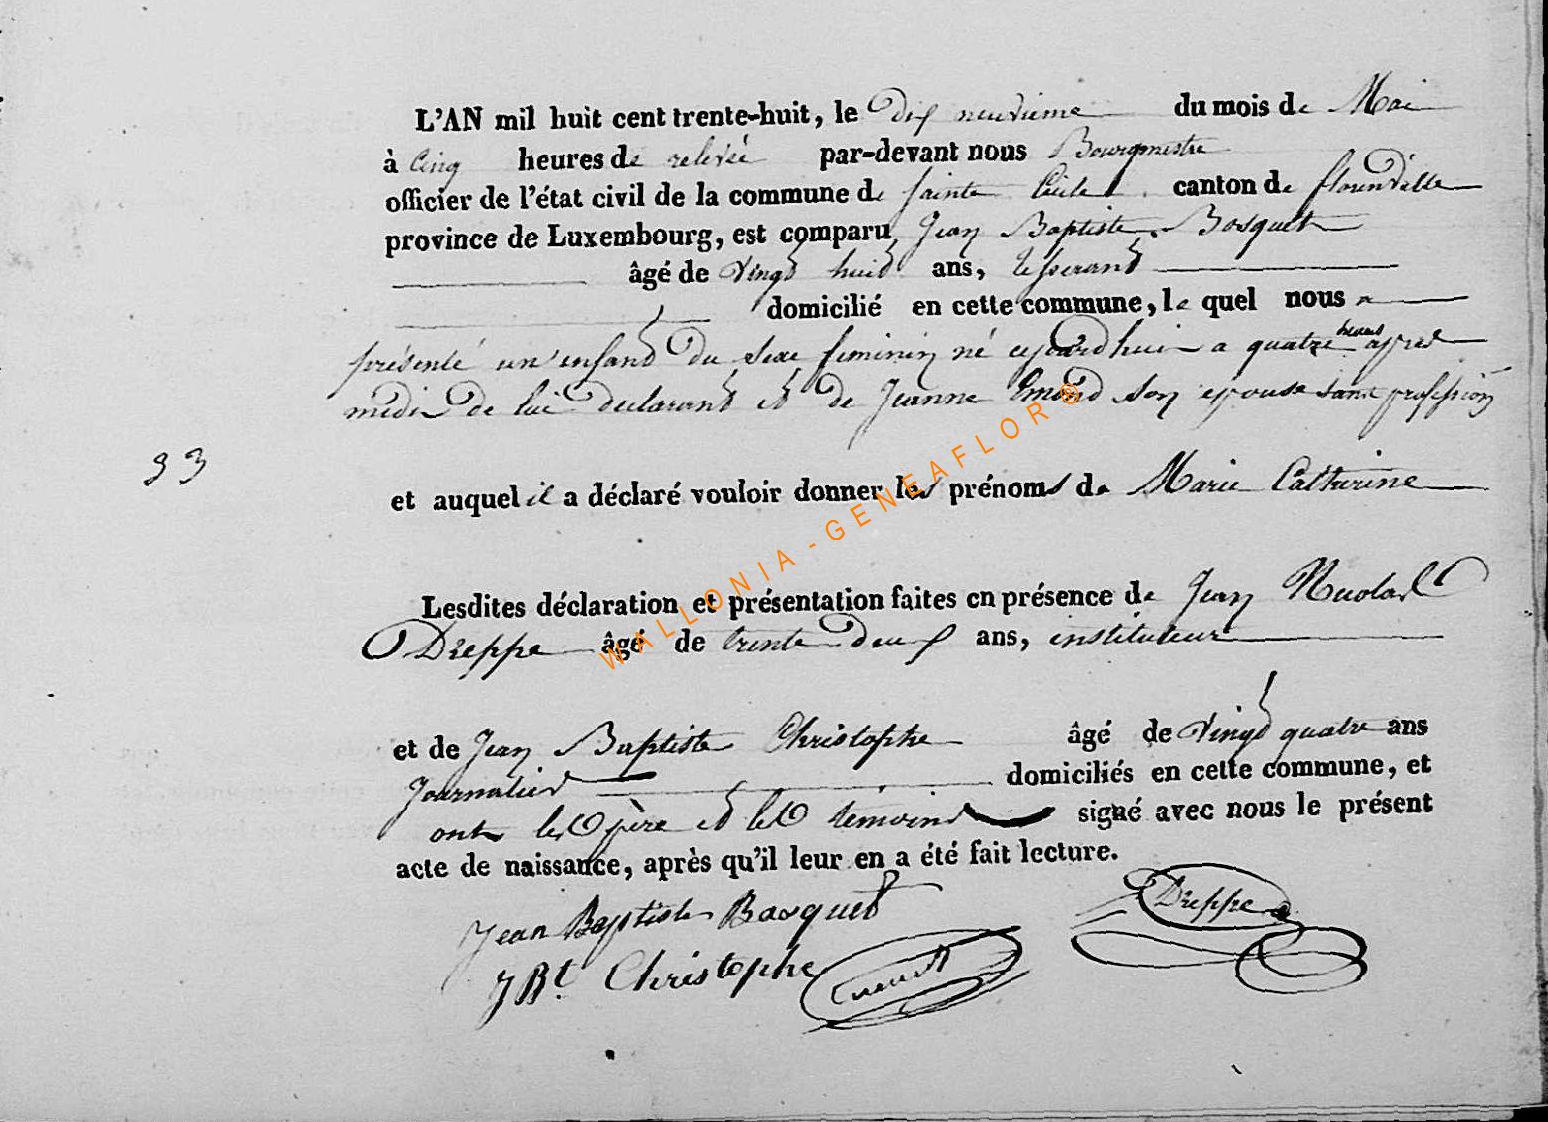 L'AN mil huit cent trente-huit, le dix neuvieme du mois de Mai
à Cinq heures de relevée par-devant nous Bourgmestre
officier de l'état civil de la commune de sainte Cécile canton de florenville
province de Luxembourg, est comparu Jean Baptiste Bosquet
âgé de vingt huit ans, tisserant
domicilié en cette commune, le quel nous a
présenté un enfant du sexe feminin né cejourdhui a quatre heures apres
midi de lui declarant et de Jeanne Emond son epouse sans profession
33
et auquel il a déclaré vouloir donner les prénoms de Marie Catherine
Lesdites déclaration et présentation faites en présence de Jean Nicolas
Dreppe âgé de trente deux ans, instituteur
et de Jean Baptiste Christophe âgé de vingt quatre ans
Journalier domiciliés en cette commune, et
ont les père et les témoins signé avec nous le présent
acte de naissance, après qu'il leur en a été fait lecture.
Jean Baptiste Bosquet Dreppe
J Bt Christophe
WALLONIA - GENEAFLOR ®